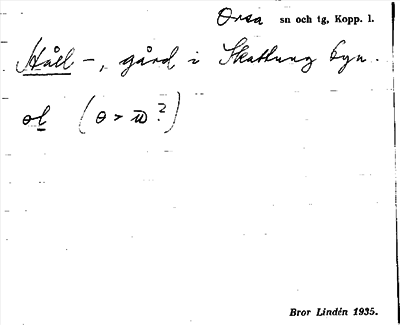 Orsa sn och tg, Kopp. l.
Håll -, gård i Skattungbyn.
ol (o > ω?)
Bror Lindén 1935.